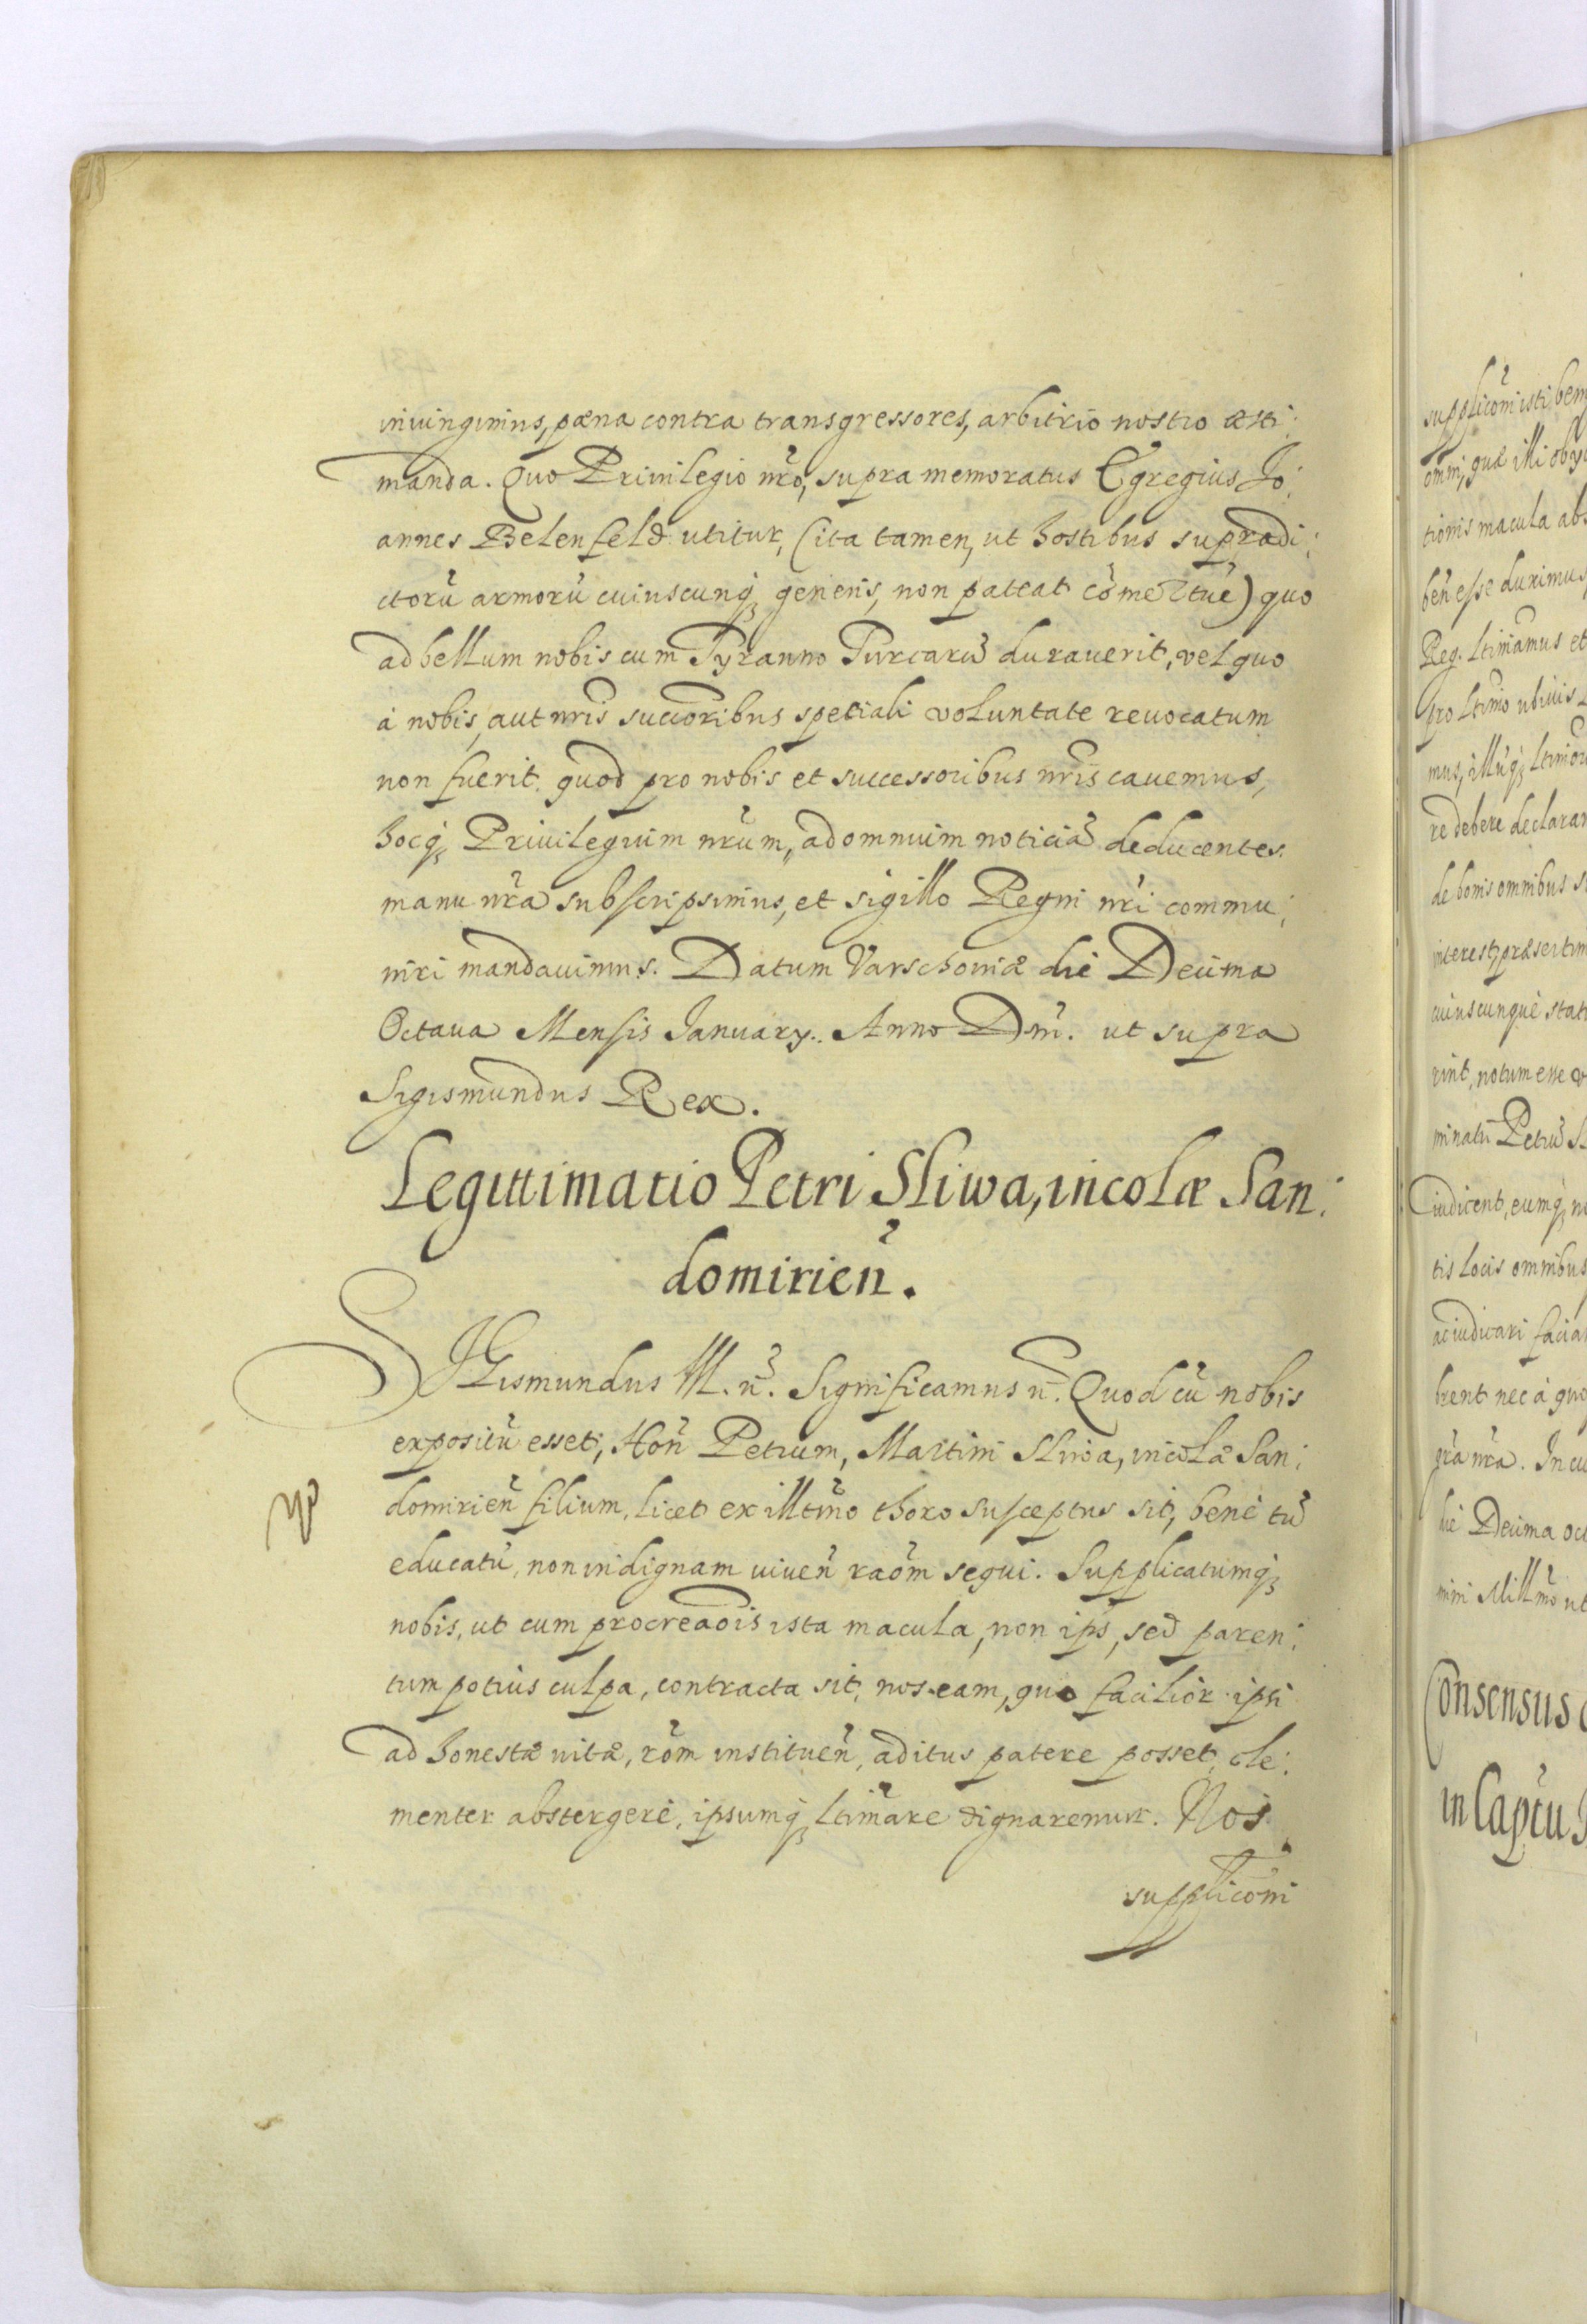 iniungimus, pæna contra transgressores, arbitrio nostro æsti:
manda. Quo Privilegio nr̃o, supra memoratus Egregius Jo:
annes Belenfeld utitur, (ita tamen, ut hostibus supradi:
ctorũ armorũ cuiuscunq; generis, non pateat) quo
ad bellum nobis cum Tyranno Turcarũ durauerit, vel quo
à nobis, aut nr̃is succ̃oribus spetiali voluntate reuocatum
non fuerit. quod pro nobis et successoribus nr̃is cauemus,
hocq; Priuilegium nr̃um, ad omnium noticiã deducentes.
manu nr̃a subscripsimus, et sigillo Regni nr̃i commu:
niri mandauimus. Datum Varschoviæ die Decima
Octaua Mensis January. Anno Dm̃. ut supra
Sigismundus Rex.
Legittimatio Petri Sliwa, incolæ San:
domirien̄.
SIGismundus M. ñ. Significamus ñ. Quod cũ nobis
expositũ esset, Hon̄ Petrum, Martini Sliwa, incolæ San:
domirien̄ filium, licet ex illtim̃o thoro susceptus sit, bene tñ
educatũ, non indignam viuen̄ rãom sequi. Supplicatumq;
nobis, ut cum procreãois ista macula, non ips, sed paren:
tum potius culpa, contracta sit, nos eam, quo facilior ipsi
ad honestæ vitæ, rõm instituen̄, aditus patere posset, cle:
menter abstergere, ipsumq; ltim̃are dignaremur. Nos
supplicõni
supplicõni isti ben
omni, quæ illi oby
tionis macula abs
ben̄ esse duximus
Reg. ltimamus et
pro ltimo ubiuis
mus, illũq; ltimor
re debere declara
de bonis omnibus
interest, præsertim
cuiuscunque stat
rint, notum esse v
minatũ Petrũ Sl
iudicent, eumq; n
tis locis omnibus
ac iudicari facia
brent nec à quo
gr̃a nr̃a. In cu
die Decima oc
mini Millm̃o ut
Consensus
in Captu